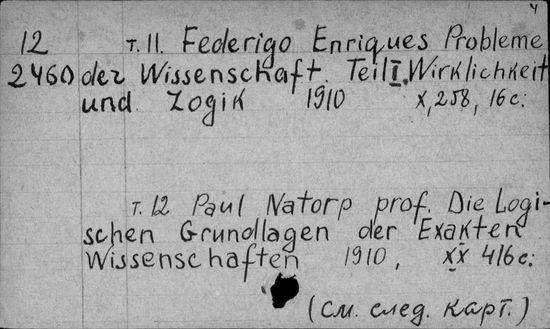 4
12 т. 11. Federigo Enriques Probleme
2460 der Wissenschaft. Teil I. Wirklichkeit
und Logik 1910 X, 258, 16 с.
т. 12 Paul Natorp prof. Die Logi-
schen Grundlagen der Exakten
Wissenschaften 1910, XX 416 с.
(см. след. карт.)